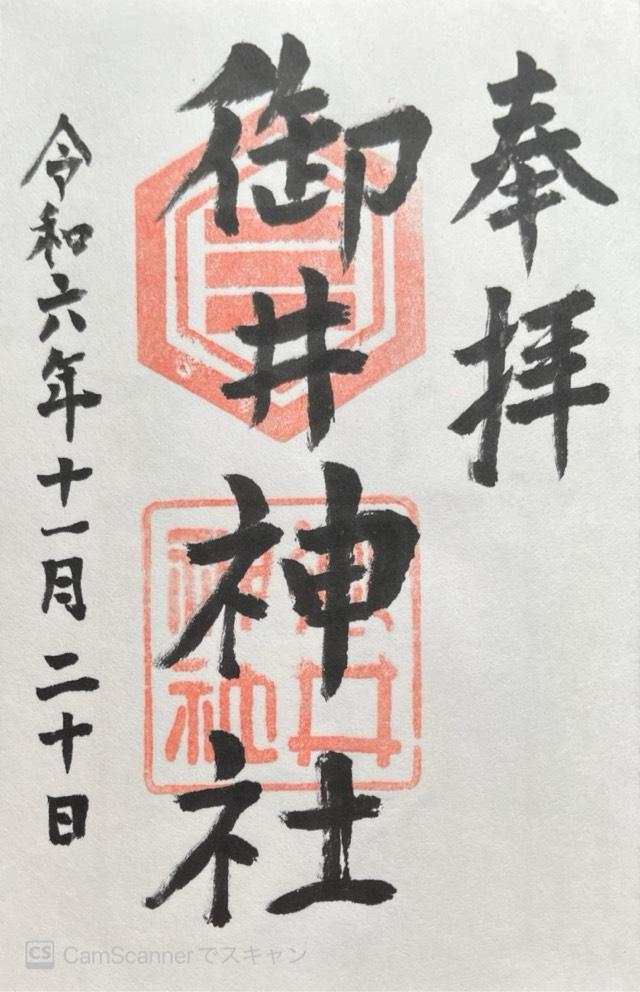 奉拝
御井神社
令和六年十一月二十日
CS CamScannerでスキャン